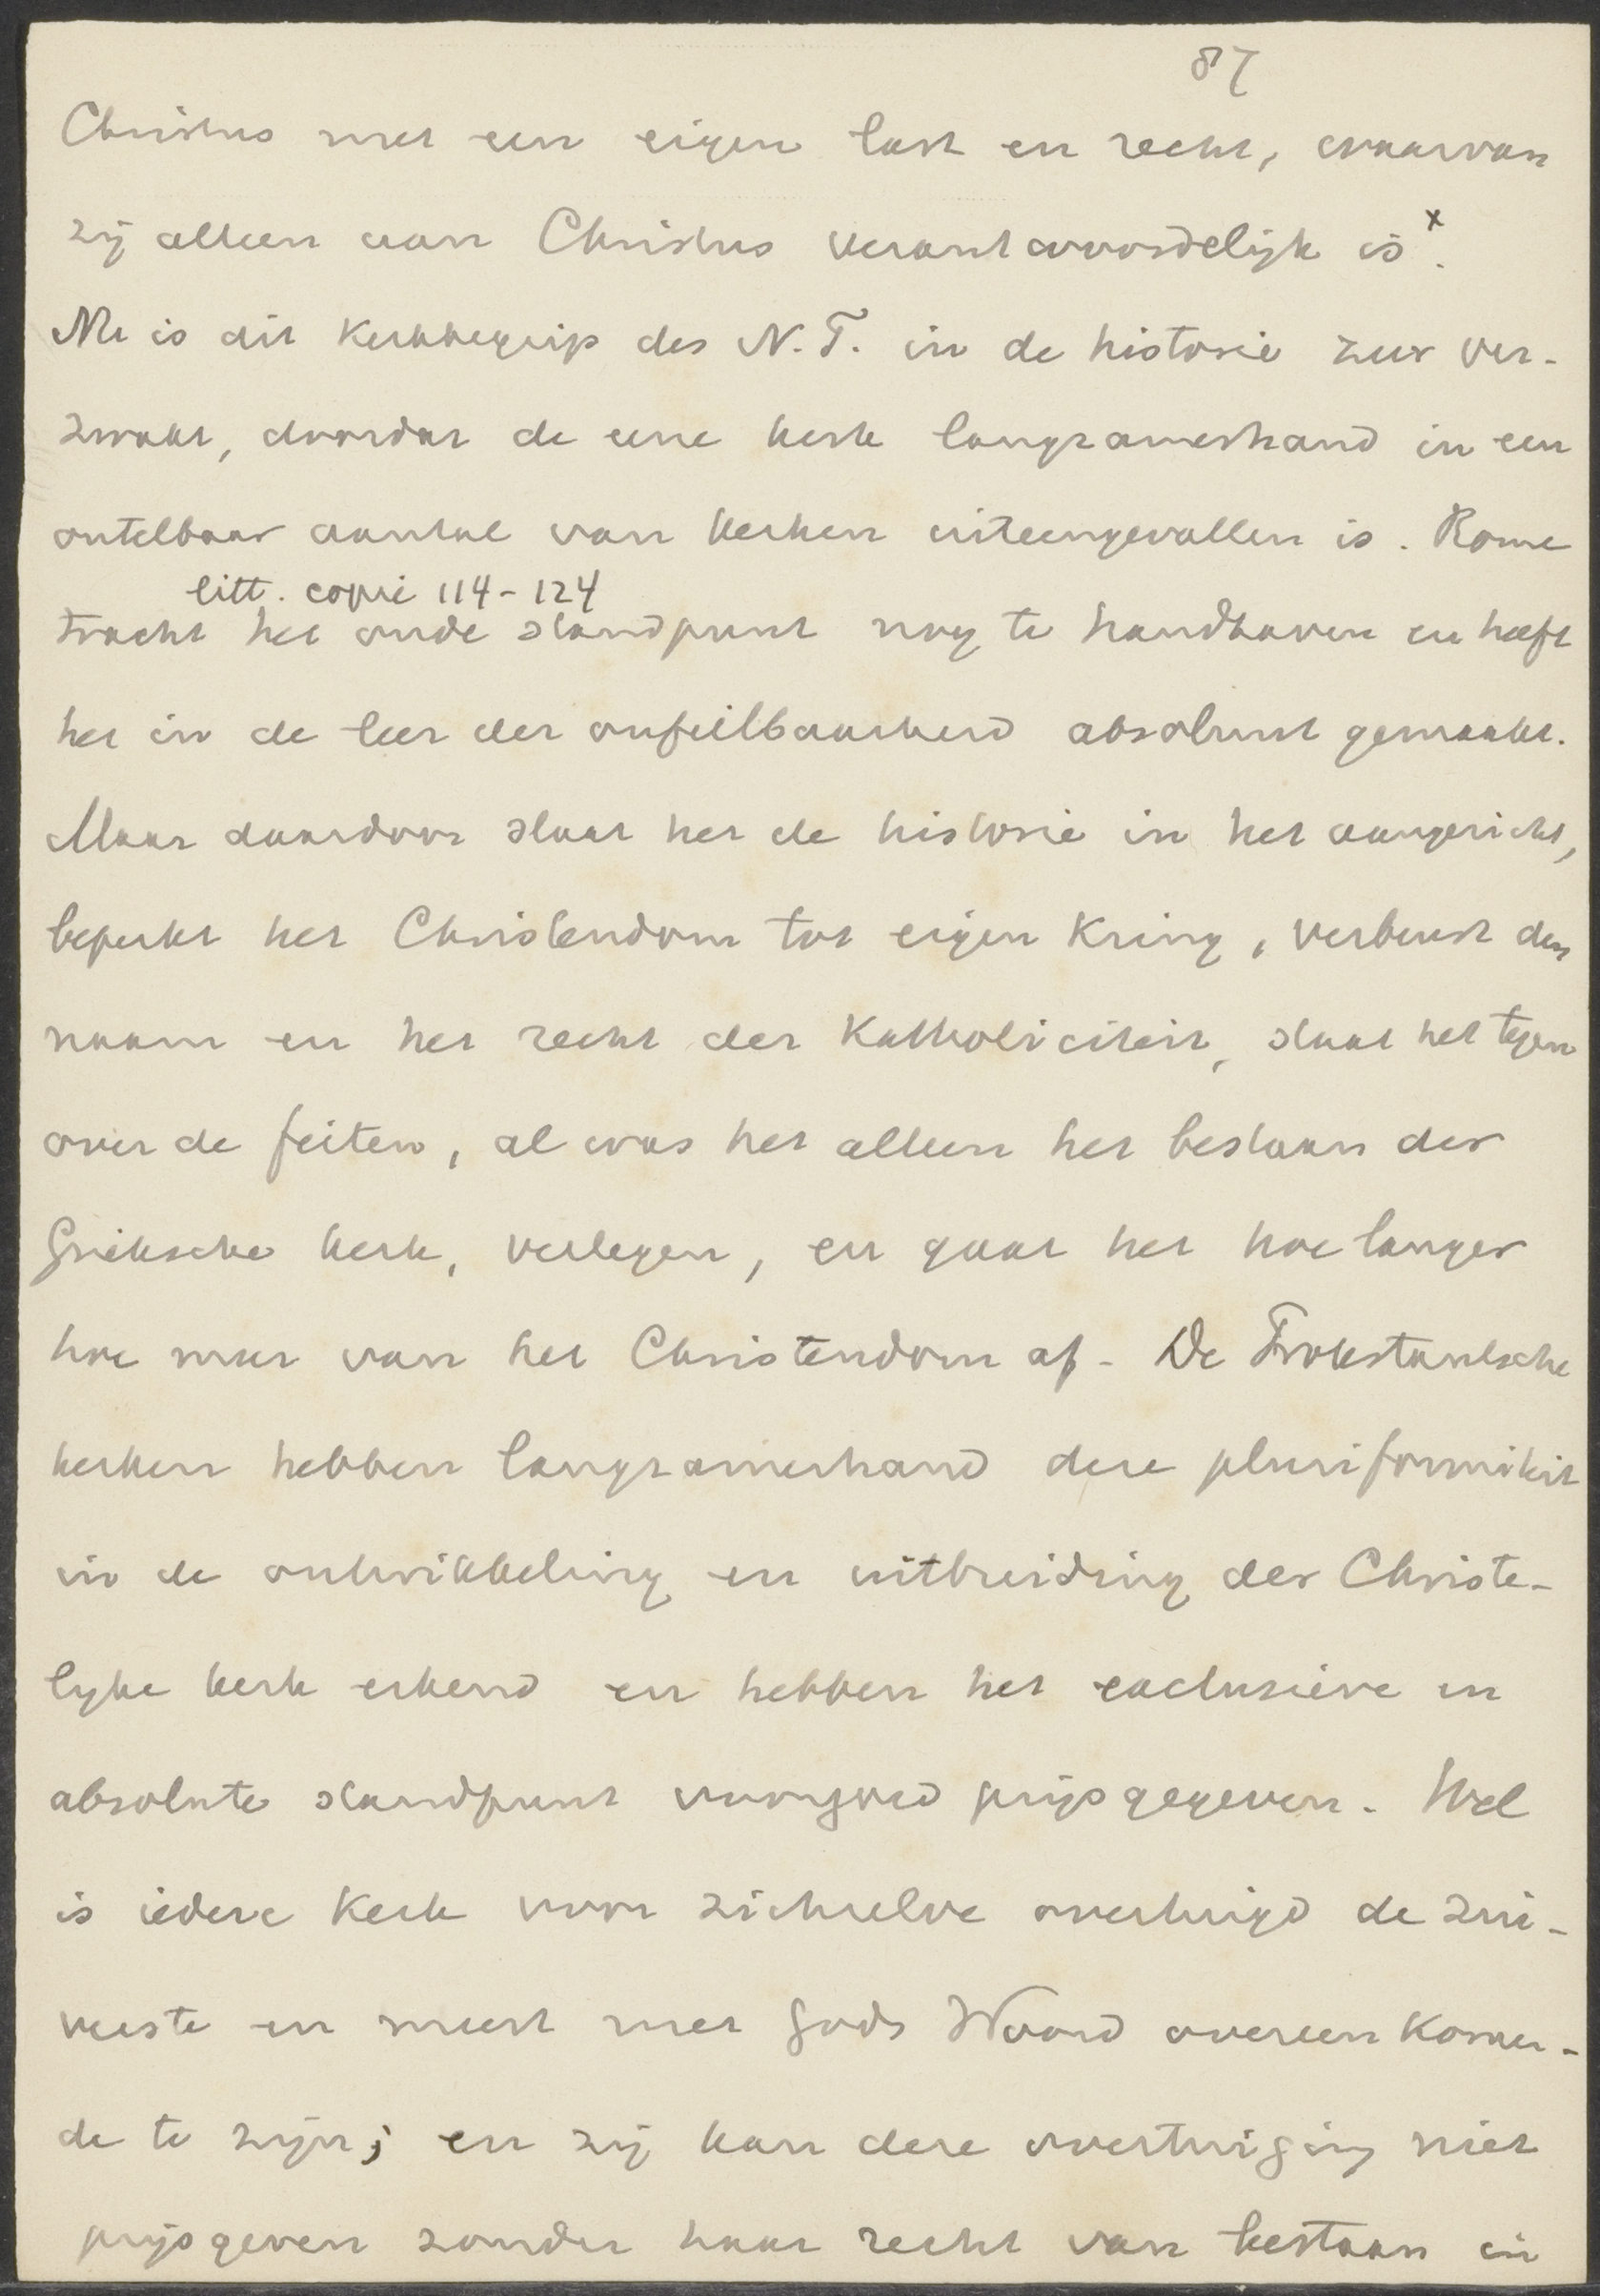 87
Christus met een eigen last en recht, waarvan
zij alleen aan Christus verantwoordelijk is x.
Nu is dit Kerkbegrip des N.T. in de historie zeer ver-
zwakt, doordat de eene kerk langzamerhand in een
ontelbaar aantal van kerken uiteengevallen is. Rome
litt. copie 114-124
tracht het oude standpunt nog te handhaven en heeft
het in de leer der onfeilbaarheid absoluut gemaakt.
Maar daardoor slaat het de historie in het aangezicht,
beperkt het Christendom tot eigen Kring, verbeurt den
naam en het recht der Katholiciteit, staat het tegen
over de feiten, al was het alleen het bestaan der
Grieksche kerk, verlegen, en gaat het hoe langer
hoe meer van het Christendom af. De Protestantsche
kerken hebben langzamerhand deze pluriformiteit
in de ontwikkeling en uitbreiding der Christe-
lyke kerk erkend en hebben het exclusieve en
absolute standpunt voorgoed prijsgegeven. Wel
is iedere Kerk voor zichzelve overtuigd de zui-
verste en meest met Gods Woord overeen Komen-
de te zijn; en zij kan deze overtuiging niet
prijsgeven zonder haar recht van bestaan in